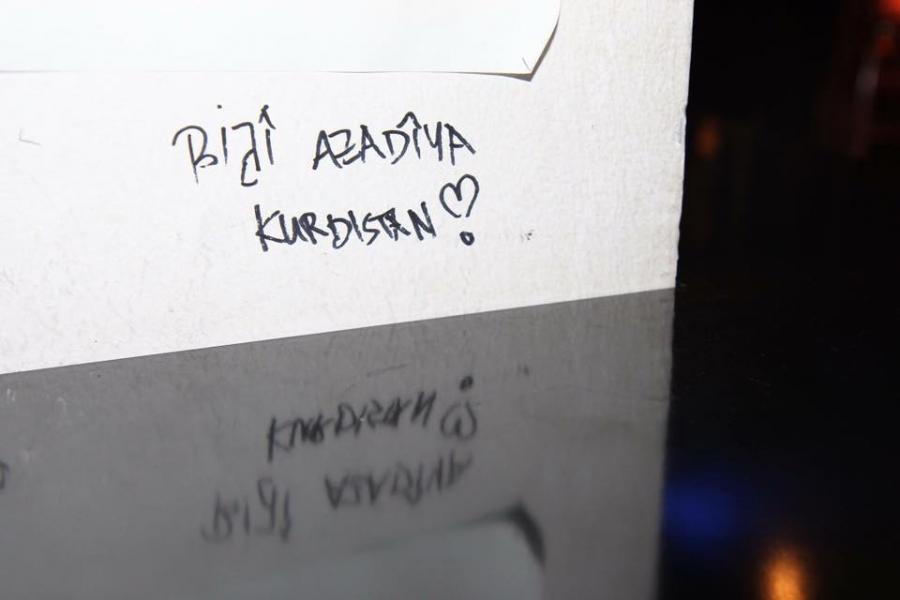 BIJÎ AZADÎYA
KURDISTAN